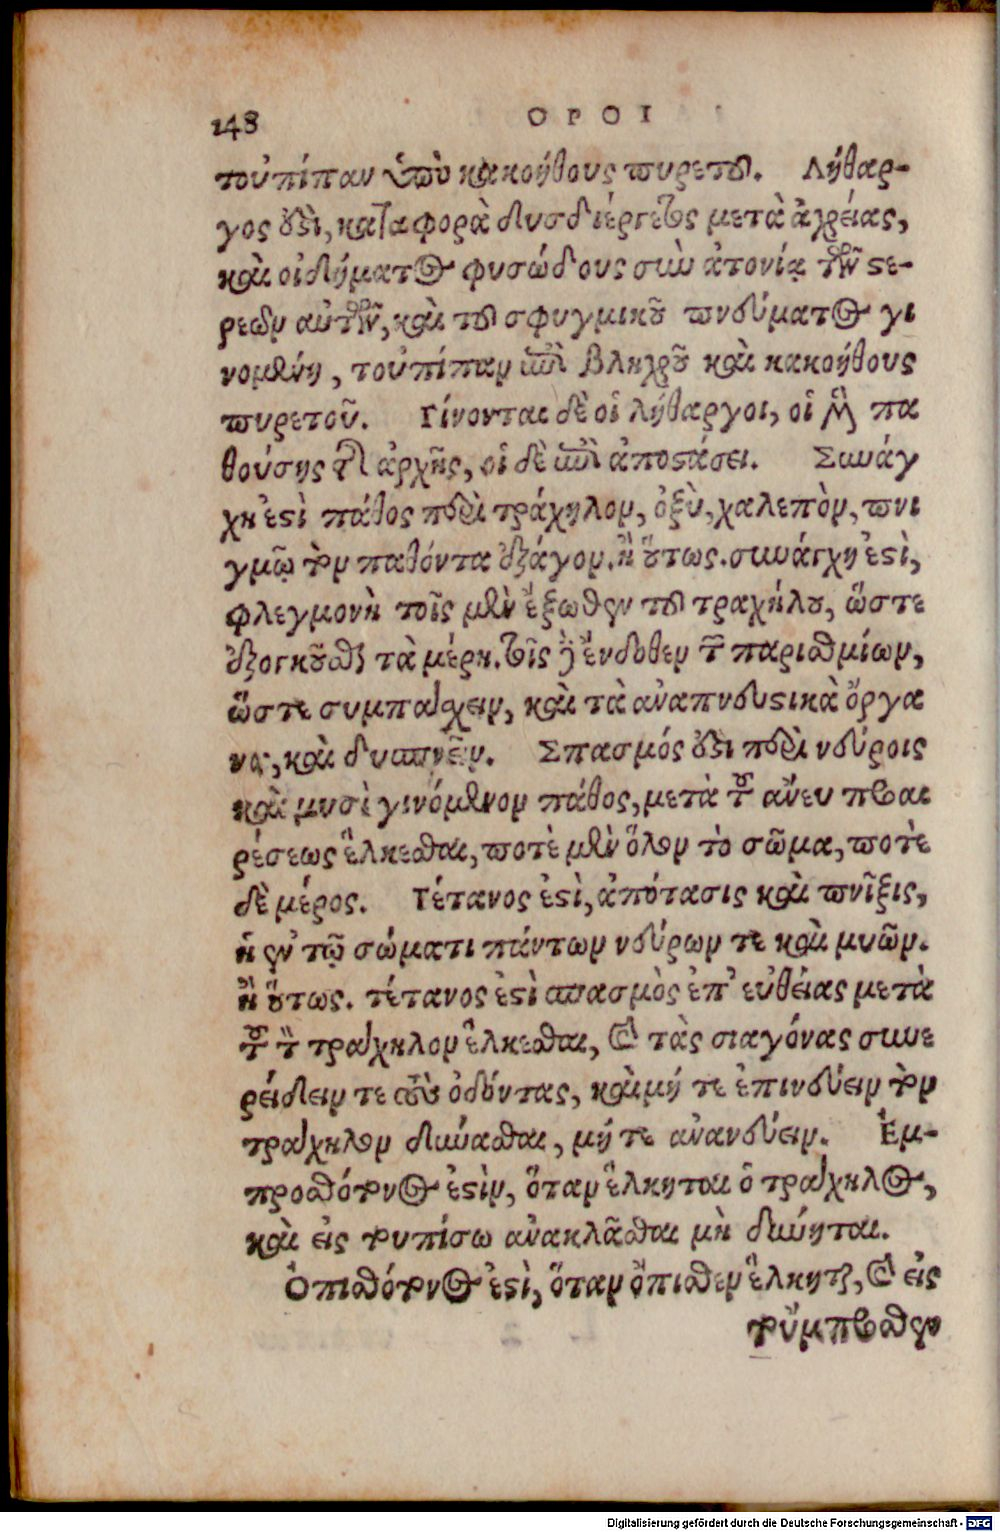 148 ΟΡΟΙ
τοὐπίπαν ὑπὸ κακοήθους πυρετοῦ. Λήθαρ-
γος ἐστὶ, καταφορὰ δυσδιέργετος μετὰ ἀχρείας,
καὶ οἰδήματος φυσώδους σὺν ἀτονίᾳ τῶν στε-
ρεῶν αὐτῶν, καὶ τοῦ σφυγμικοῦ πνεύματος γι
νομένη, τοὐπίπαν ἐπὶ βληχροῦ καὶ κακοήθους
πυρετοῦ. Γίνονται δὲ οἱ λήθαργοι, οἱ μὲν πα
θούσης τῆς ἀρχῆς, οἱ δὲ ἐπὶ ἀποστάσει. Συνάγ
χη ἐστὶ πάθος περὶ τράχηλον, ὀξὺ, χαλεπὸν, πνι
γμῷ τὸν παθόντα ἐξάγον. ἢ οὕτως. συνάγχη ἐστὶ,
φλεγμονὴ τοῖς μὲν ἔξωθεν τοῦ τραχήλου, ὥστε
ἐξογκοῦσθαι τὰ μέρη. τοῖς δὲ ἔνδοθεν τῶν παρισθμίων,
ὥστε συμπάσχειν, καὶ τὰ ἀναπνευστικὰ ὄργα
να, καὶ δυσπνεῖν. Σπασμός ἐστι περὶ νεύροις
καὶ μυσὶ γινόμενον πάθος, μετὰ τοῦ ἄνευ προαι
ρέσεως ἕλκεσθαι, ποτὲ μὲν ὅλον τὸ σῶμα, ποτὲ
δὲ μέρος. Τέτανος ἐστὶ, ἀπότασις καὶ πνῖξις,
ἡ ἐν τῷ σώματι πάντων νεύρων τε καὶ μυῶν.
ἢ οὕτως. τέτανος ἐστὶ σπασμὸς ἐπ’ εὐθείας μετὰ
τοῦ τὸν τράχηλον ἕλκεσθαι, καὶ τὰς σιαγόνας συνε
ρείδειν τε τοὺς ὀδόντας, καὶ μή τε ἐπινεύειν τὸν
τράχηλον δύνασθαι, μή τε ἀνανεύειν. Ἐμ-
προσθότονος ἐστὶν, ὅταν ἕλκηται ὁ τράχηλος,
καὶ εἰς τοὐπίσω ἀνακλᾶσθαι μὴ δύνηται.
Ὀπισθότονος ἐστὶ, ὅταν ὄπισθεν ἕλκηται, καὶ εἰς
τοὔμπροσθεν
Digitalisierung gefördert durch die Deutsche Forschungsgemeinschaft - DFG